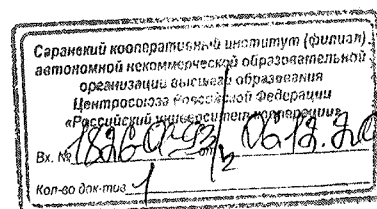 Саранский кооперативный институт (филиал)
автономной некоммерческой образовательной
организации высшего образования
Центросоюза Российской Федерации
«Российский университет кооперации»
Вх. №
Кол-во док-тив 1